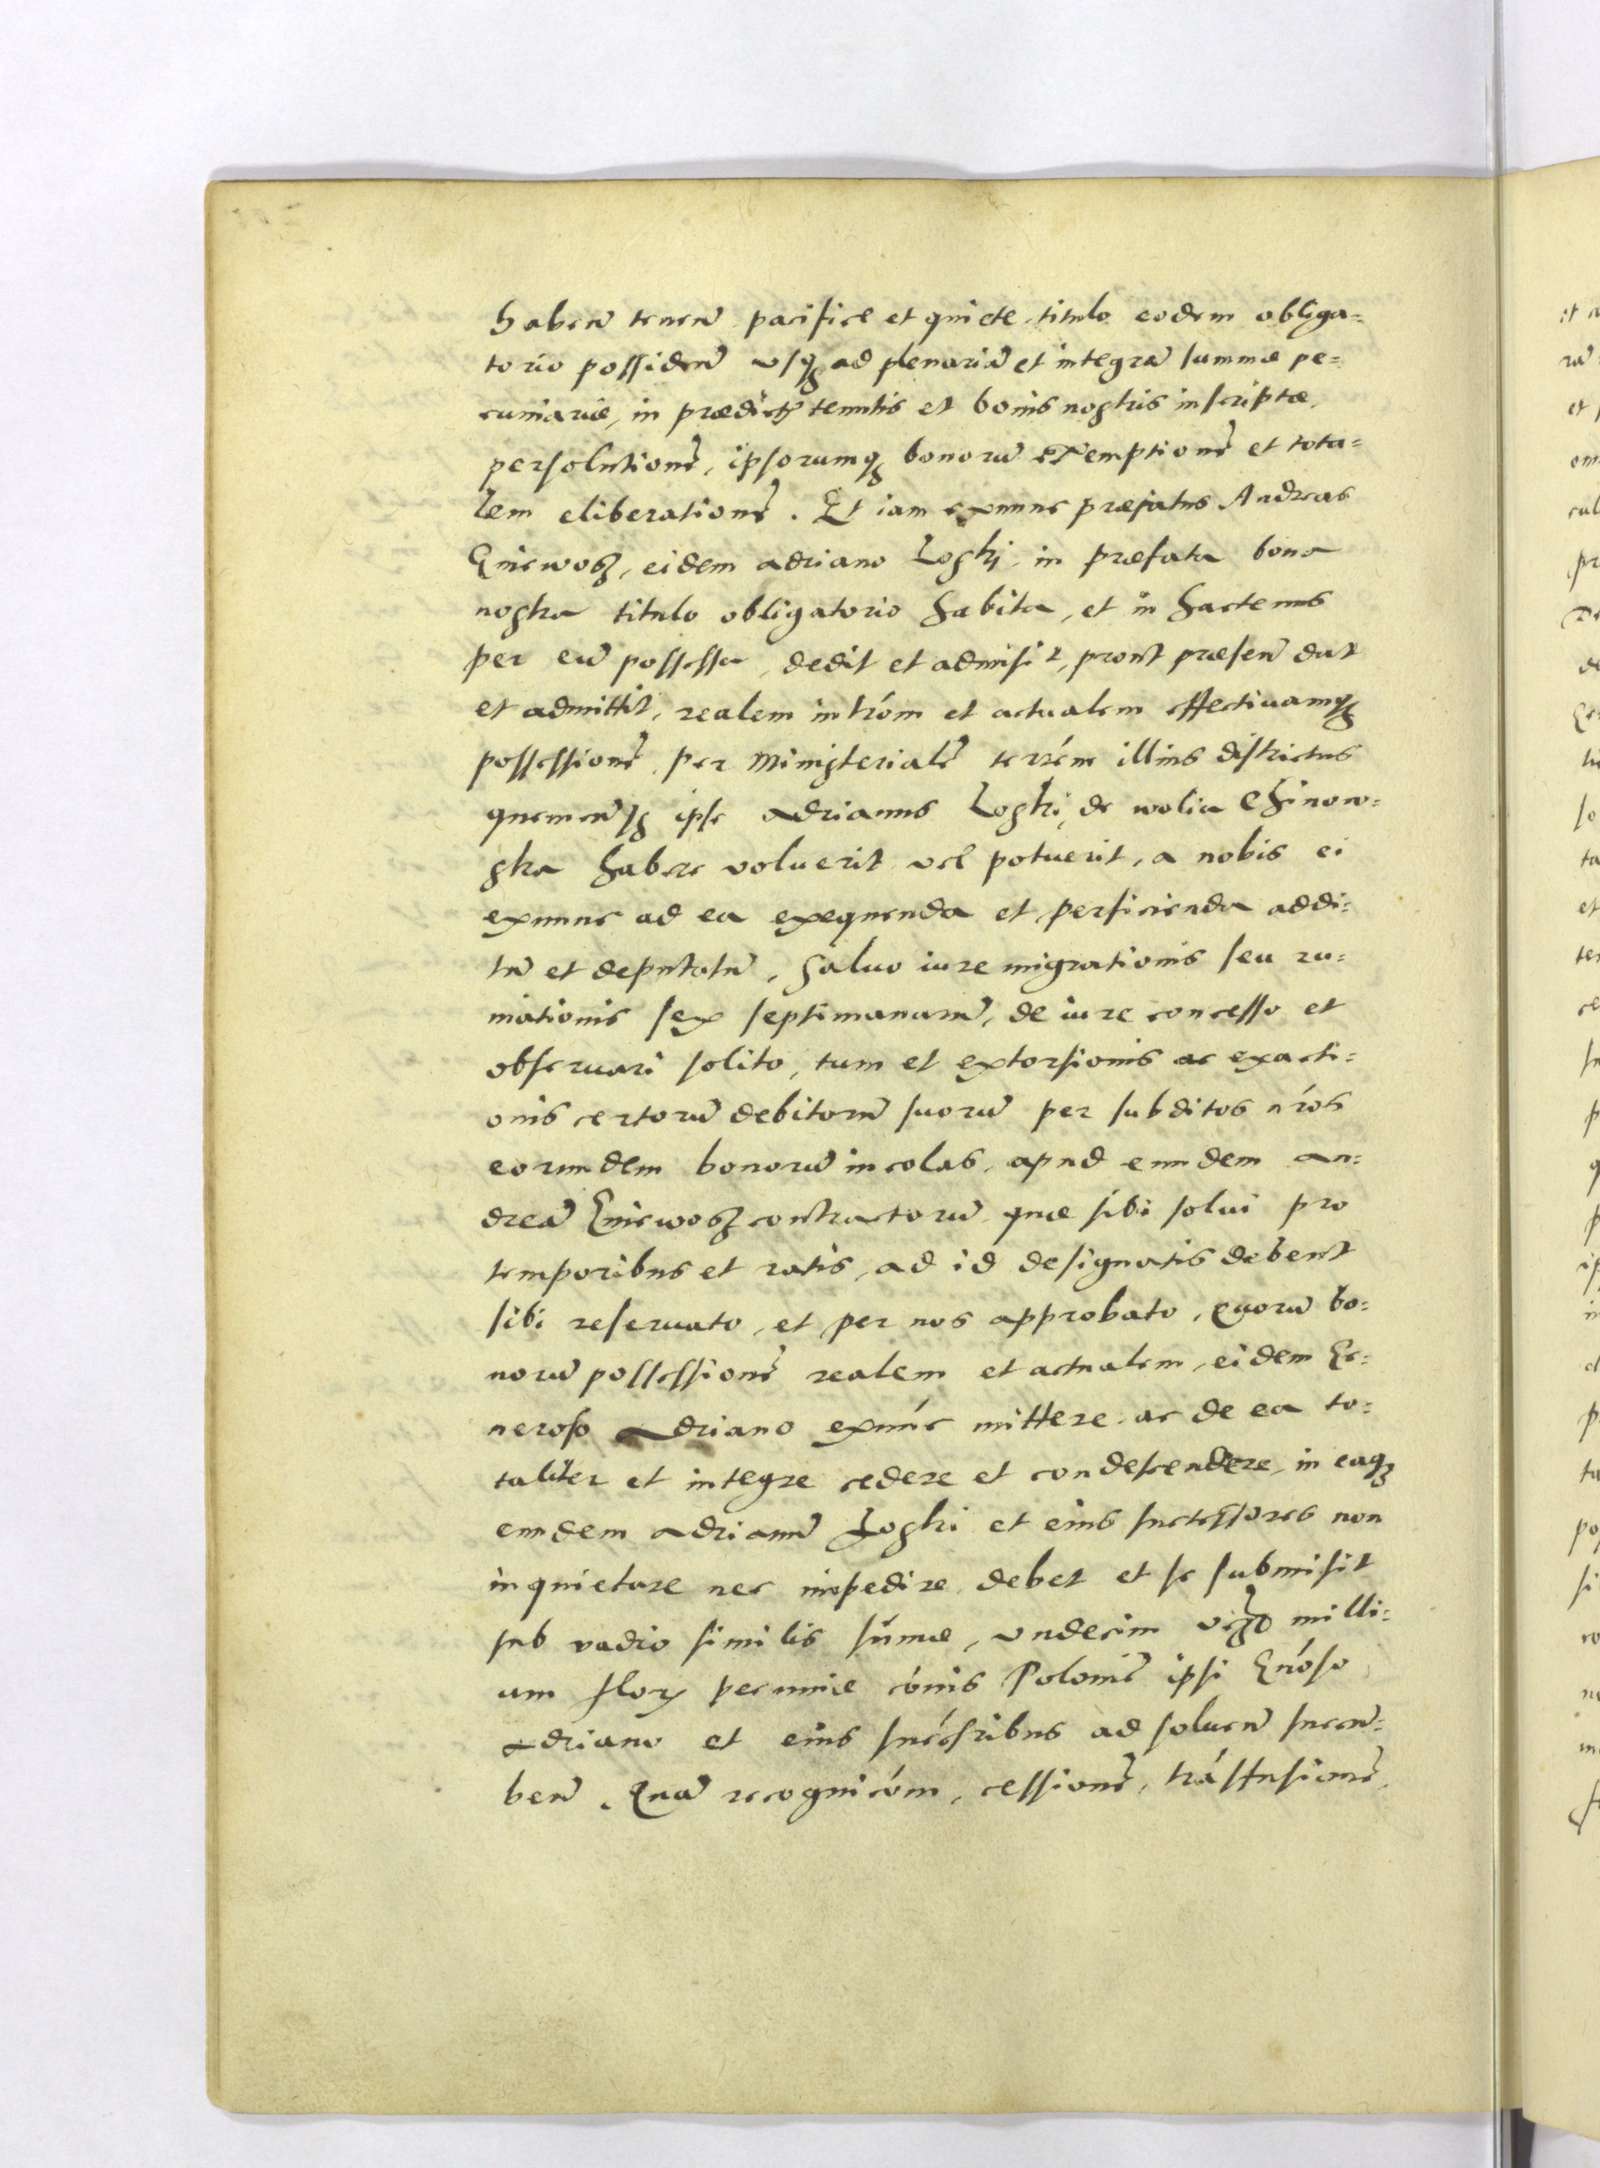 haben̄ tenen̄ pacifice et quiete titulo eodem obliga=
torio possiden̄ vsqꝫ ad plenariā et integrā summæ pe=
cuniariæ, in prædictꝭ tenutis et bonis nostris inscriptæ,
persolutionē, ipsorumqꝫ bonorū exemptionē et tota=
lem eliberationē. Et iam exnunc præfatus Andreas
Gniewosz, eidem adriano Loski, in præfata bona
nostra titulo obligatorio habita, et in hactenus
per eū possessa, dedit et admisit, prout præsen̄ dat
et admittit, realem intrōm et actualem effectiuamqꝫ
possessionē per Ministerialē terrēne illius districtus
quemcunqꝫ ipse Adrianus Loski, de wolia Chinow=
ska habere voluerit vel potuerit, a nobis ei
exnunc ad ea exequenda et perficienda addi=
tū et deputatū, saluo iure migrationis seu ru=
mationis sex septimanarū, de iure concesso et
obseruari solito, tum et extorsionis ac exacti=
onis certorū debitorū suorū per subditos nr̄os
eorundem bonorū incolas, apud eundem An=
dreā Gniewosz contractorū, quæ sibi solui pro
temporibus et ratis, ad id designatis debent
sibi reseruato, et per nos approbato, Quorū bo=
norū possessionē realem et actualem, eidem Ge=
neroso Adriano exnūc mittere ac de ea to=
taliter et integre cedere et condescendere, in eaqꝫ
eundem Adrianū Loski et eius successores non
inquietare nec impedire debet et se submisit
sub vadio similis sūmæ, vndecim milli=
um florꝫ pecuniæ cōnis Poloniē ipsi Gnōso
Adriano et eius succēsribus ad soluen̄ succū=
ben̄. Quā recognicōm, cessionē, trāsfusionē,